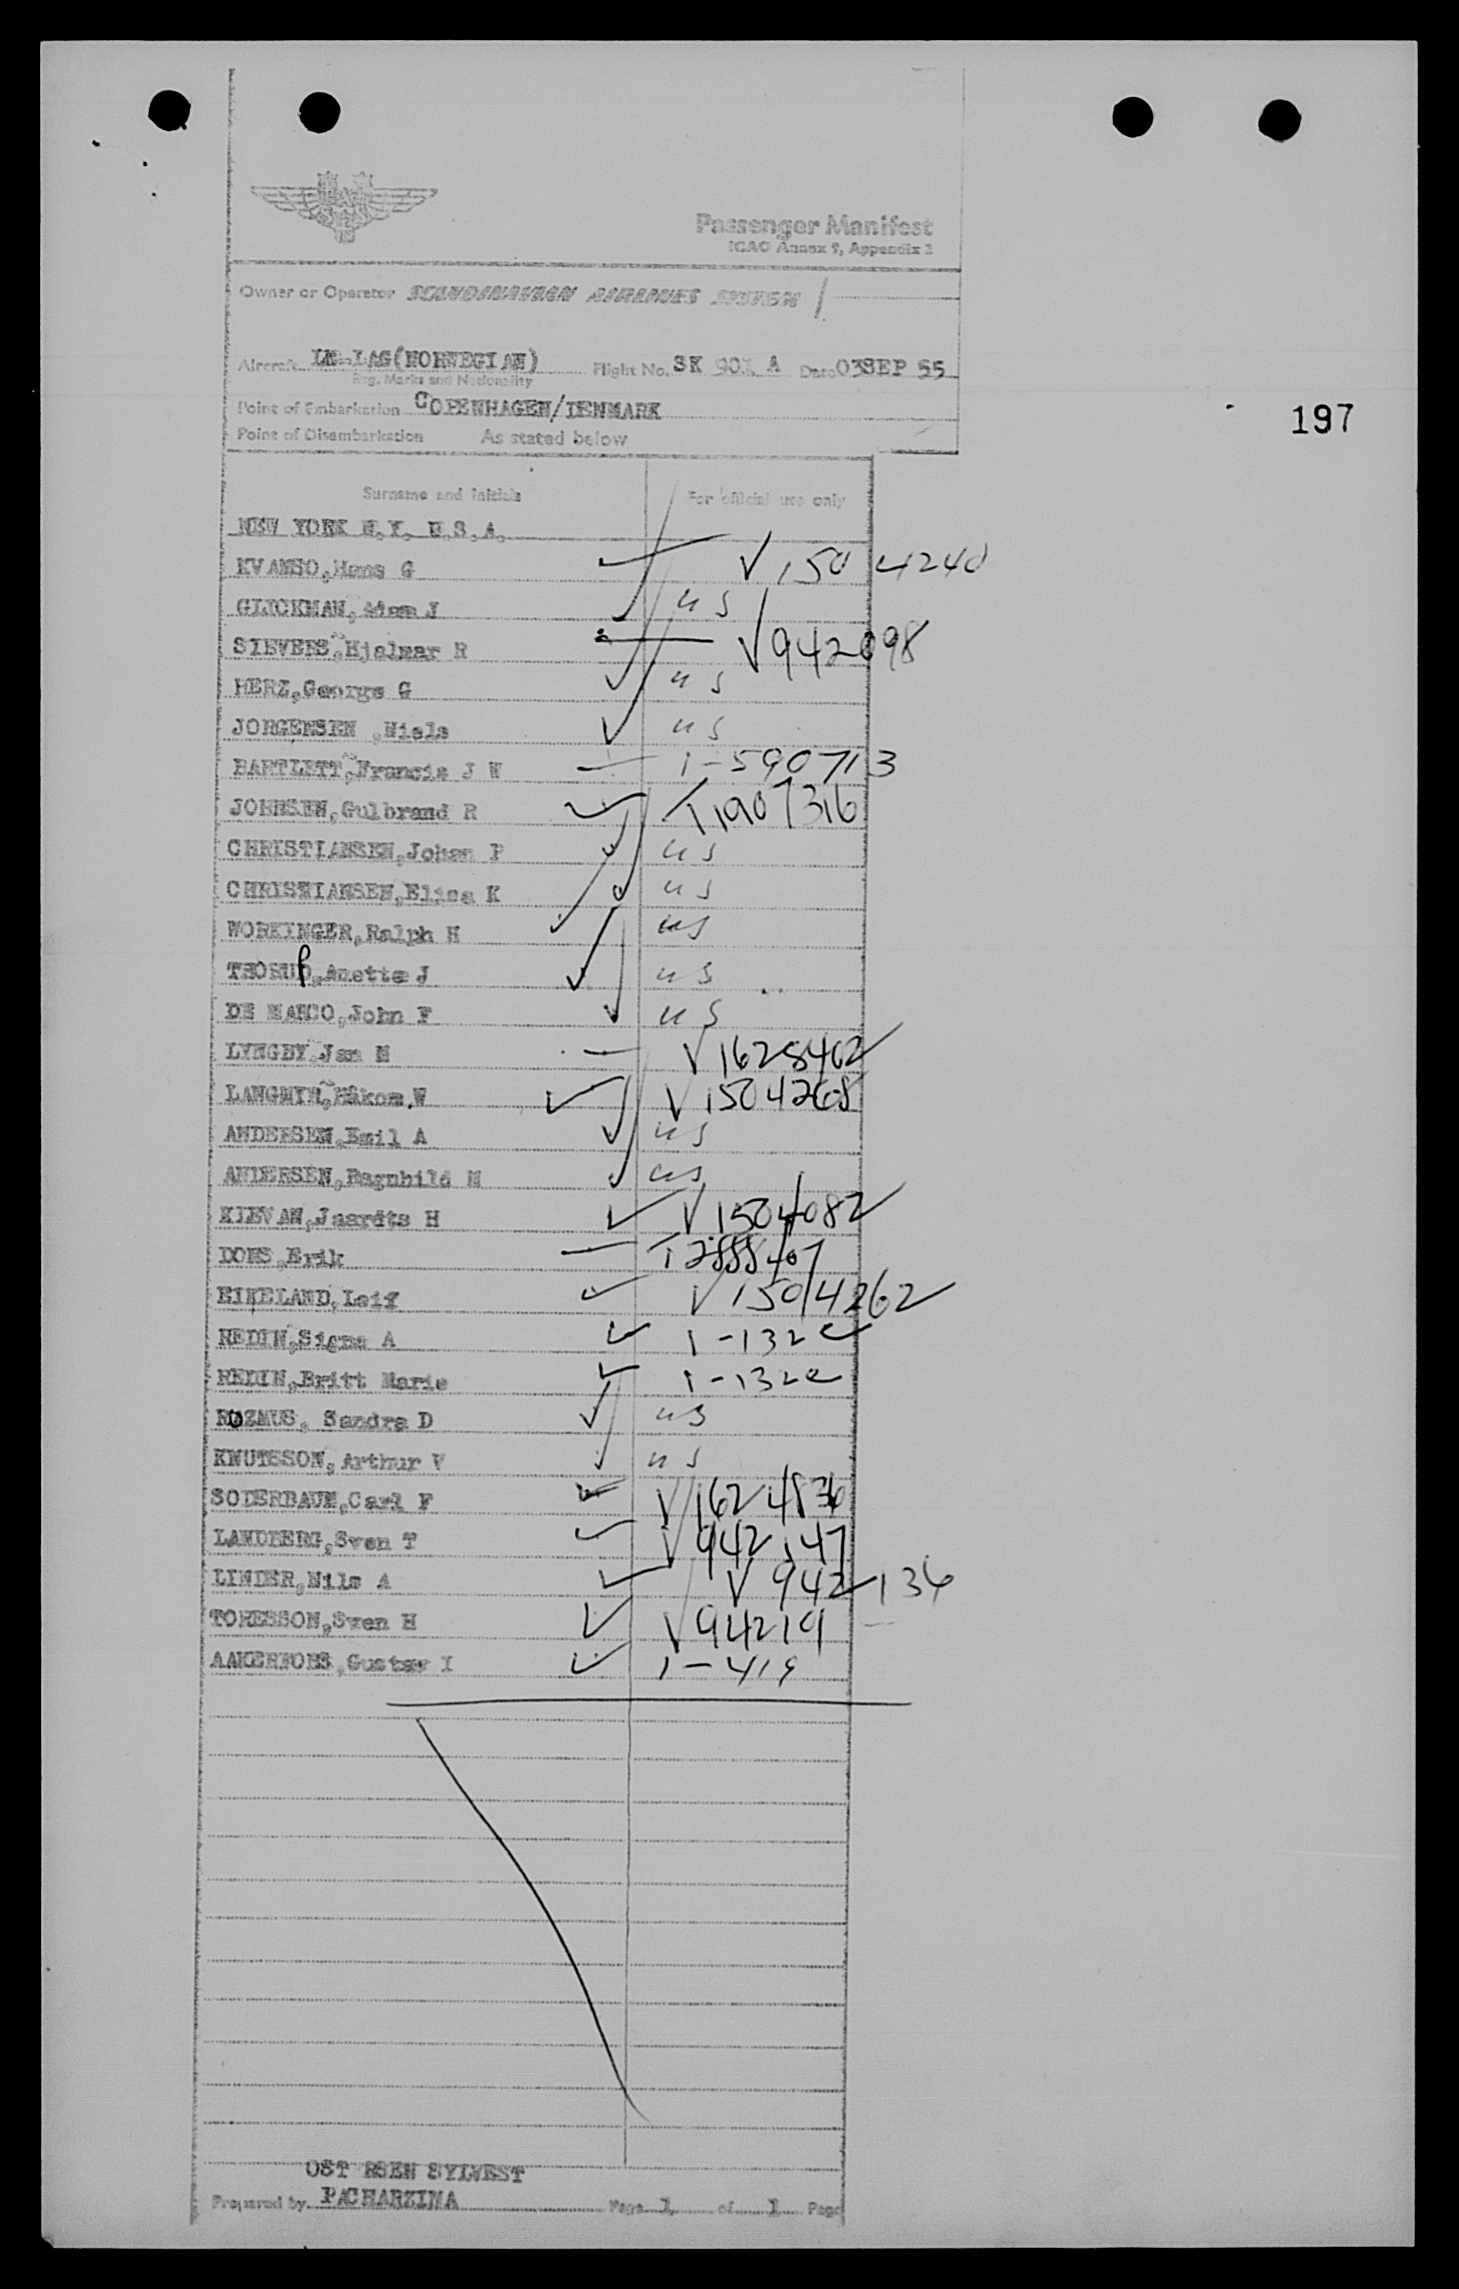 Passenger Manifest
ICAO Annex 9, Appendix 2
Owner or Operator SCANDINAVIAN AIRLINES SYSTEM
Aircraft LN-LAG(NORWEGIAN) Flight No. SK 901 A Date 03SEP 55
Reg. Marks and Nationality
Point of Embarkation COPENHAGEN/DENMARK
197
Point of Disembarkation As stated below
Surname and initials For official use only
NEW YORK N.Y. U.S.A.
KVAMSO,Hans G V 1504240
GLICKMAN,Adam J us
SIEVERS,Hjalmar R V942098
HERZ,George G us
JORGENSEN ,Niels us
BARTLETT,Francis J W 1-590713
JOHNSEN,Gulbrand R T1907316
CHRISTIANSEN,Johan P us
CHRISTIANSEN,Elisa K us
WORKINGER,Ralph H us
THORUP,Anette J us
DE MARCO,John F us
LYNGBY,Jan M V1628402
LANGMYR,Håkon.W V1504268
ANDERSEN,Emil A us
ANDERSEN,Ragnhild M us
KIEVAN,Jaardts H V1504082
DONS,Erik T 2888407
EIKELAND,Leif V1504262
REDIN,Signe A 1-132e
REDIN,Britt Marie 1-132e
ROZMUS, Sandra D us
KNUTSSON,Arthur V us
SODERBAUM,Carl F V1624836
LANDBERG,Sven T V942147
LINDER,Nils A V942136
TORESSON,Sven H V94219
AAKERFORS,Gustav I 1-419
OST RSEN SYLVEST
Prepared by PACHARZINA Page 1 of 1 Page